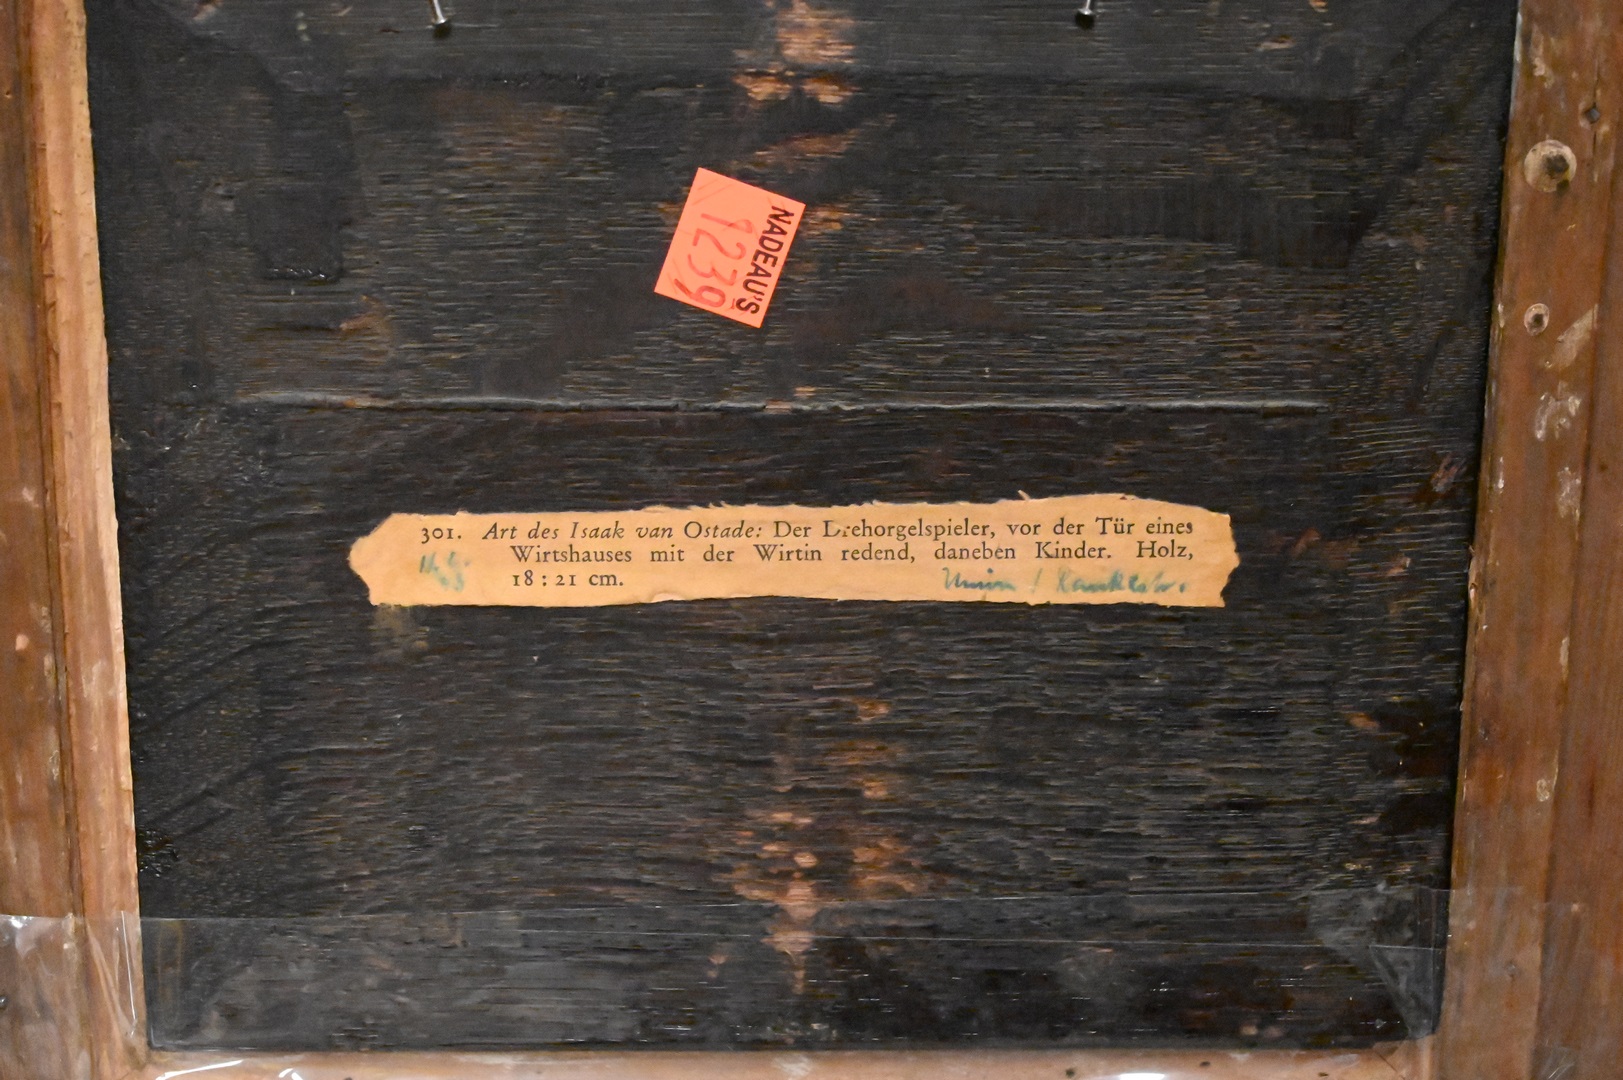 NADEAU'S
1239
301. Art des Isaak van Ostade: Der Drehorgelspieler, vor der Tür eines
Wirtshauses mit der Wirtin redend, daneben Kinder. Holz,
18 : 21 cm.